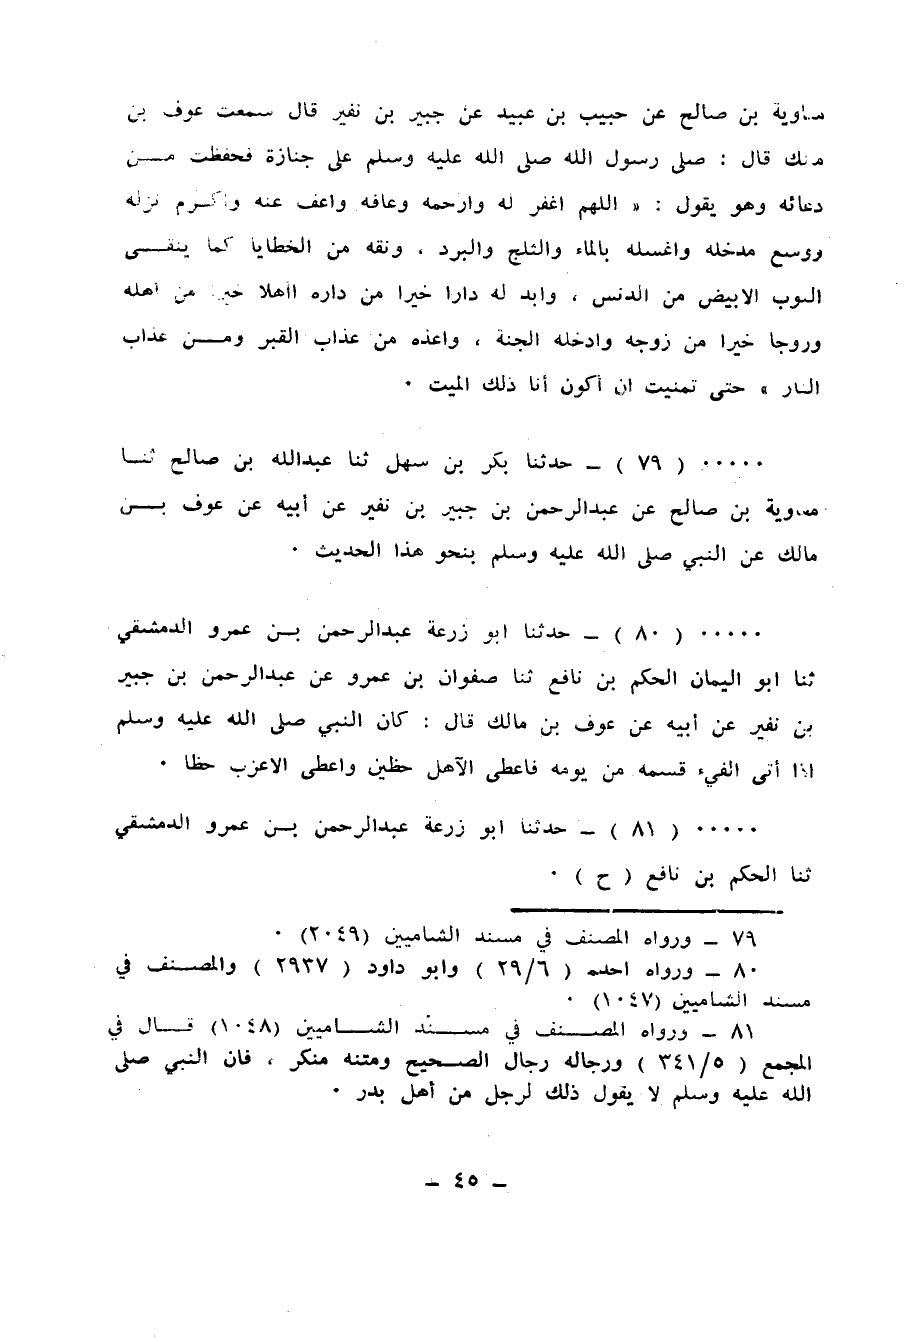 معاوية بن صالح عن حبيب بن عبيد عن جبير بن نفير قال سمعت عوف بن
مالك قال : صلى رسول الله صلى الله عليه وسلم على جنازة فحفظت مـــن
دعائه وهو يقول : « اللهم اغفر له وارحمه وعافه واعف عنه واكـرم نزله
ووسع مدخله واغسله بالماء والثلج والبرد ، ونقه من الخطايا كما ينقـــى
الثوب الابيض من الدنس ، وابد له دارا خيرا من داره اأهلا خير من اهله
وزوجا خيرا من زوجه وادخله الجنة ، واعذه من عذاب القبر ومـــن عذاب
النار » حتى تمنيت ان أكون أنا ذلك الميت ٠
٠٠٠٠٠ ( ٧٩ ) ــ حدثنا بكر بن سهل ثنا عبدالله بن صالح ثنـــا
معاوية بن صالح عن عبدالرحمن بن جبير بن نفير عن أبيه عن عوف بـــن
مالك عن النبي صلى الله عليه وسلم بنحو هذا الحديث ٠
٠٠٠٠٠ ( ٨٠ ) ــ حدثنا ابو زرعة عبدالرحمن بــن عمرو الدمشقي
ثنا ابو اليمان الحكم بن نافع ثنا صفوان بن عمرو عن عبدالرحمن بن جبير
بن نفير عن أبيه عن عوف بن مالك قال : كان النبي صلى الله عليه وسلم
اذا أتى الفيء قسمه من يومه فاعطى الآهل حظين واعطى الاعزب حظا ٠
٠٠٠٠٠ ( ٨١ ) ــ حدثنا ابو زرعة عبدالرحمن بــن عمرو الدمشقي
ثنا الحكم بن نافع ( ح ) ٠
٧٩ ــ ورواه المصنف في مسند الشاميين (٢٠٤٩) ٠
٨٠ ــ ورواه احمد ( ٢٩/٦ ) وابو داود ( ٢٩٣٧ ) والمصنف في
مسند الشاميين (١٠٤٧) ٠
٨١ ــ ورواه المصنــف في مســند الشــاميين (١٠٤٨) قــال في
المجمع ( ٣٤١/٥ ) ورجاله رجال الصحيح ومتنه منكر ، فان النبي صلى
الله عليه وسلم لا يقول ذلك لرجل من أهل بدر ٠
ــ ٤٥ ــ